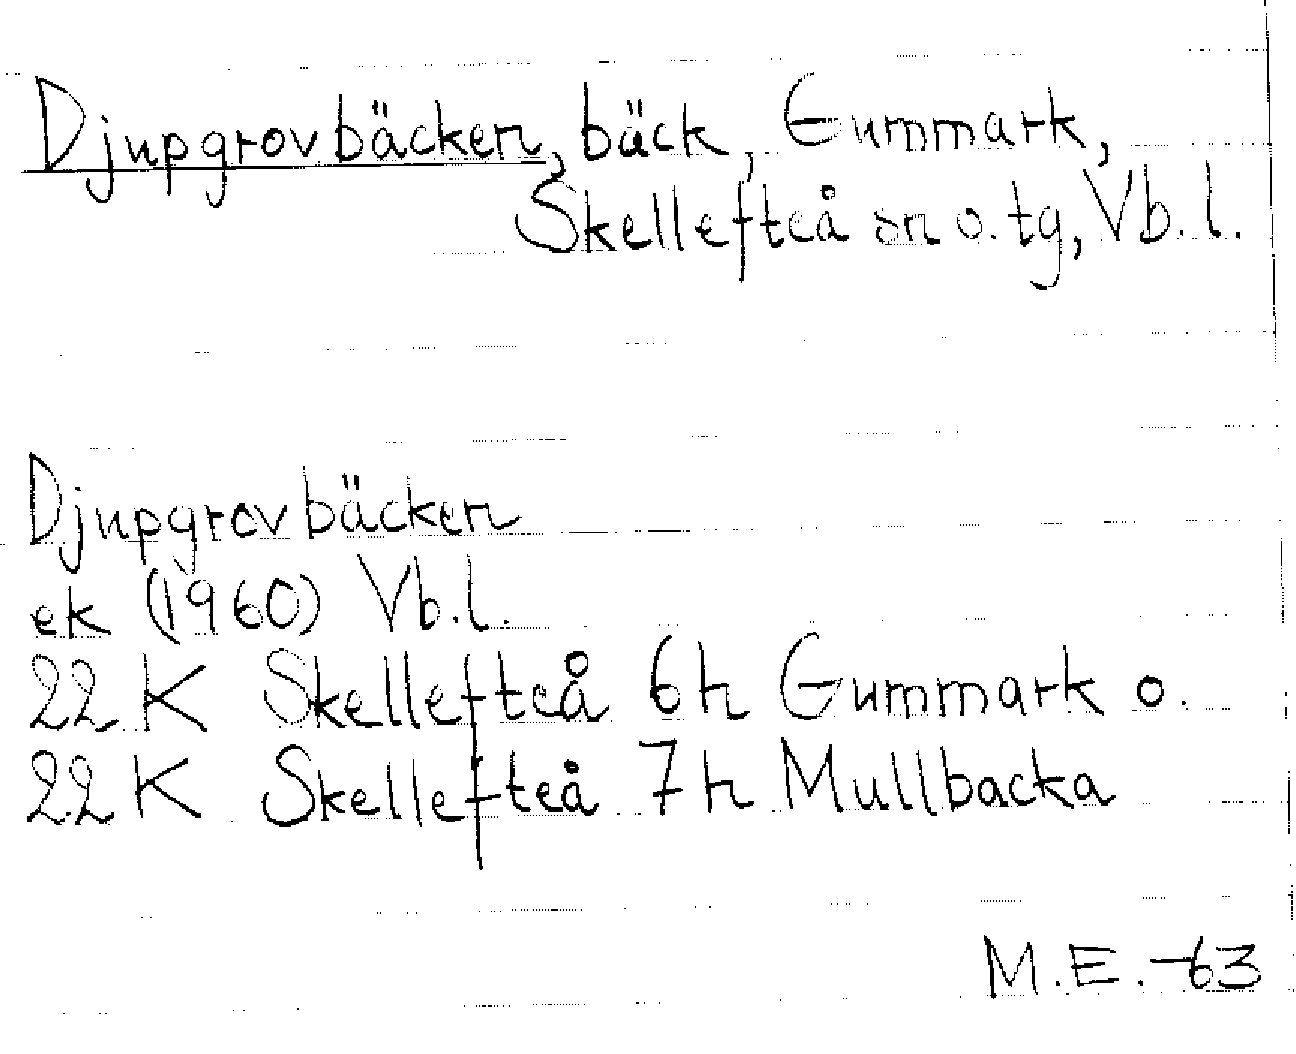 Djupgrovbäcken, bäck, Gummark,
Skellefteå sn o. tg, Vb. l.
Djupgrovbäcken
ek (1960) Vb. l.
22 K Skellefteå 6h Gummark o.
22 K Skellefteå 7h Mullbacka
M.E. -63